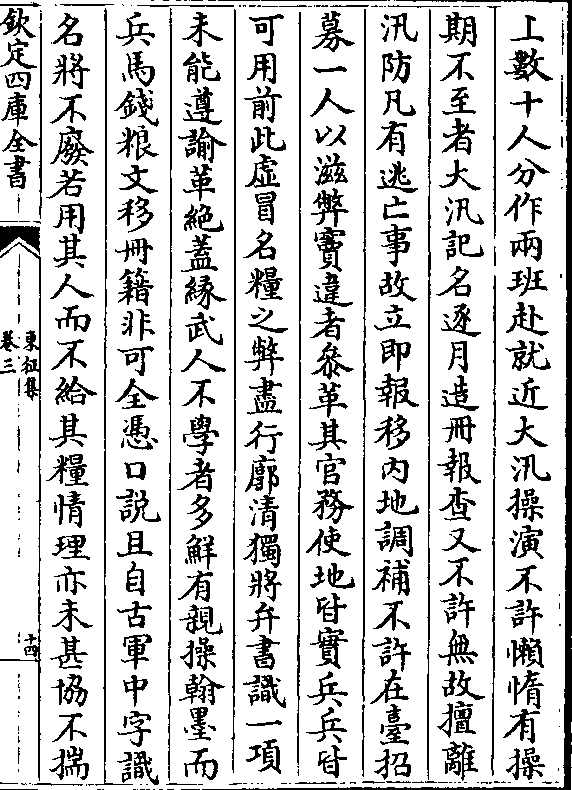 上數十人分作兩班赴就近大汛操演不許懶惰有操
期不至者大汛記名逐月造冊報查又不許無故擅離
汛防凡有逃亡事故立即報移内地調補不許在臺招
募一人以滋弊竇違者叅革其官務使地皆實兵兵皆
可用前此虚冒名糧之弊盡行廓清獨將弁書識一項
未能遵諭革絶葢縁武人不學者多鮮有親操翰墨而
兵馬錢粮文移冊籍非可全憑口説且自古軍中字識
名將不廢若用其人而不給其糧情理亦未甚協不揣
欽定四庫全書
東征集
卷三
十四